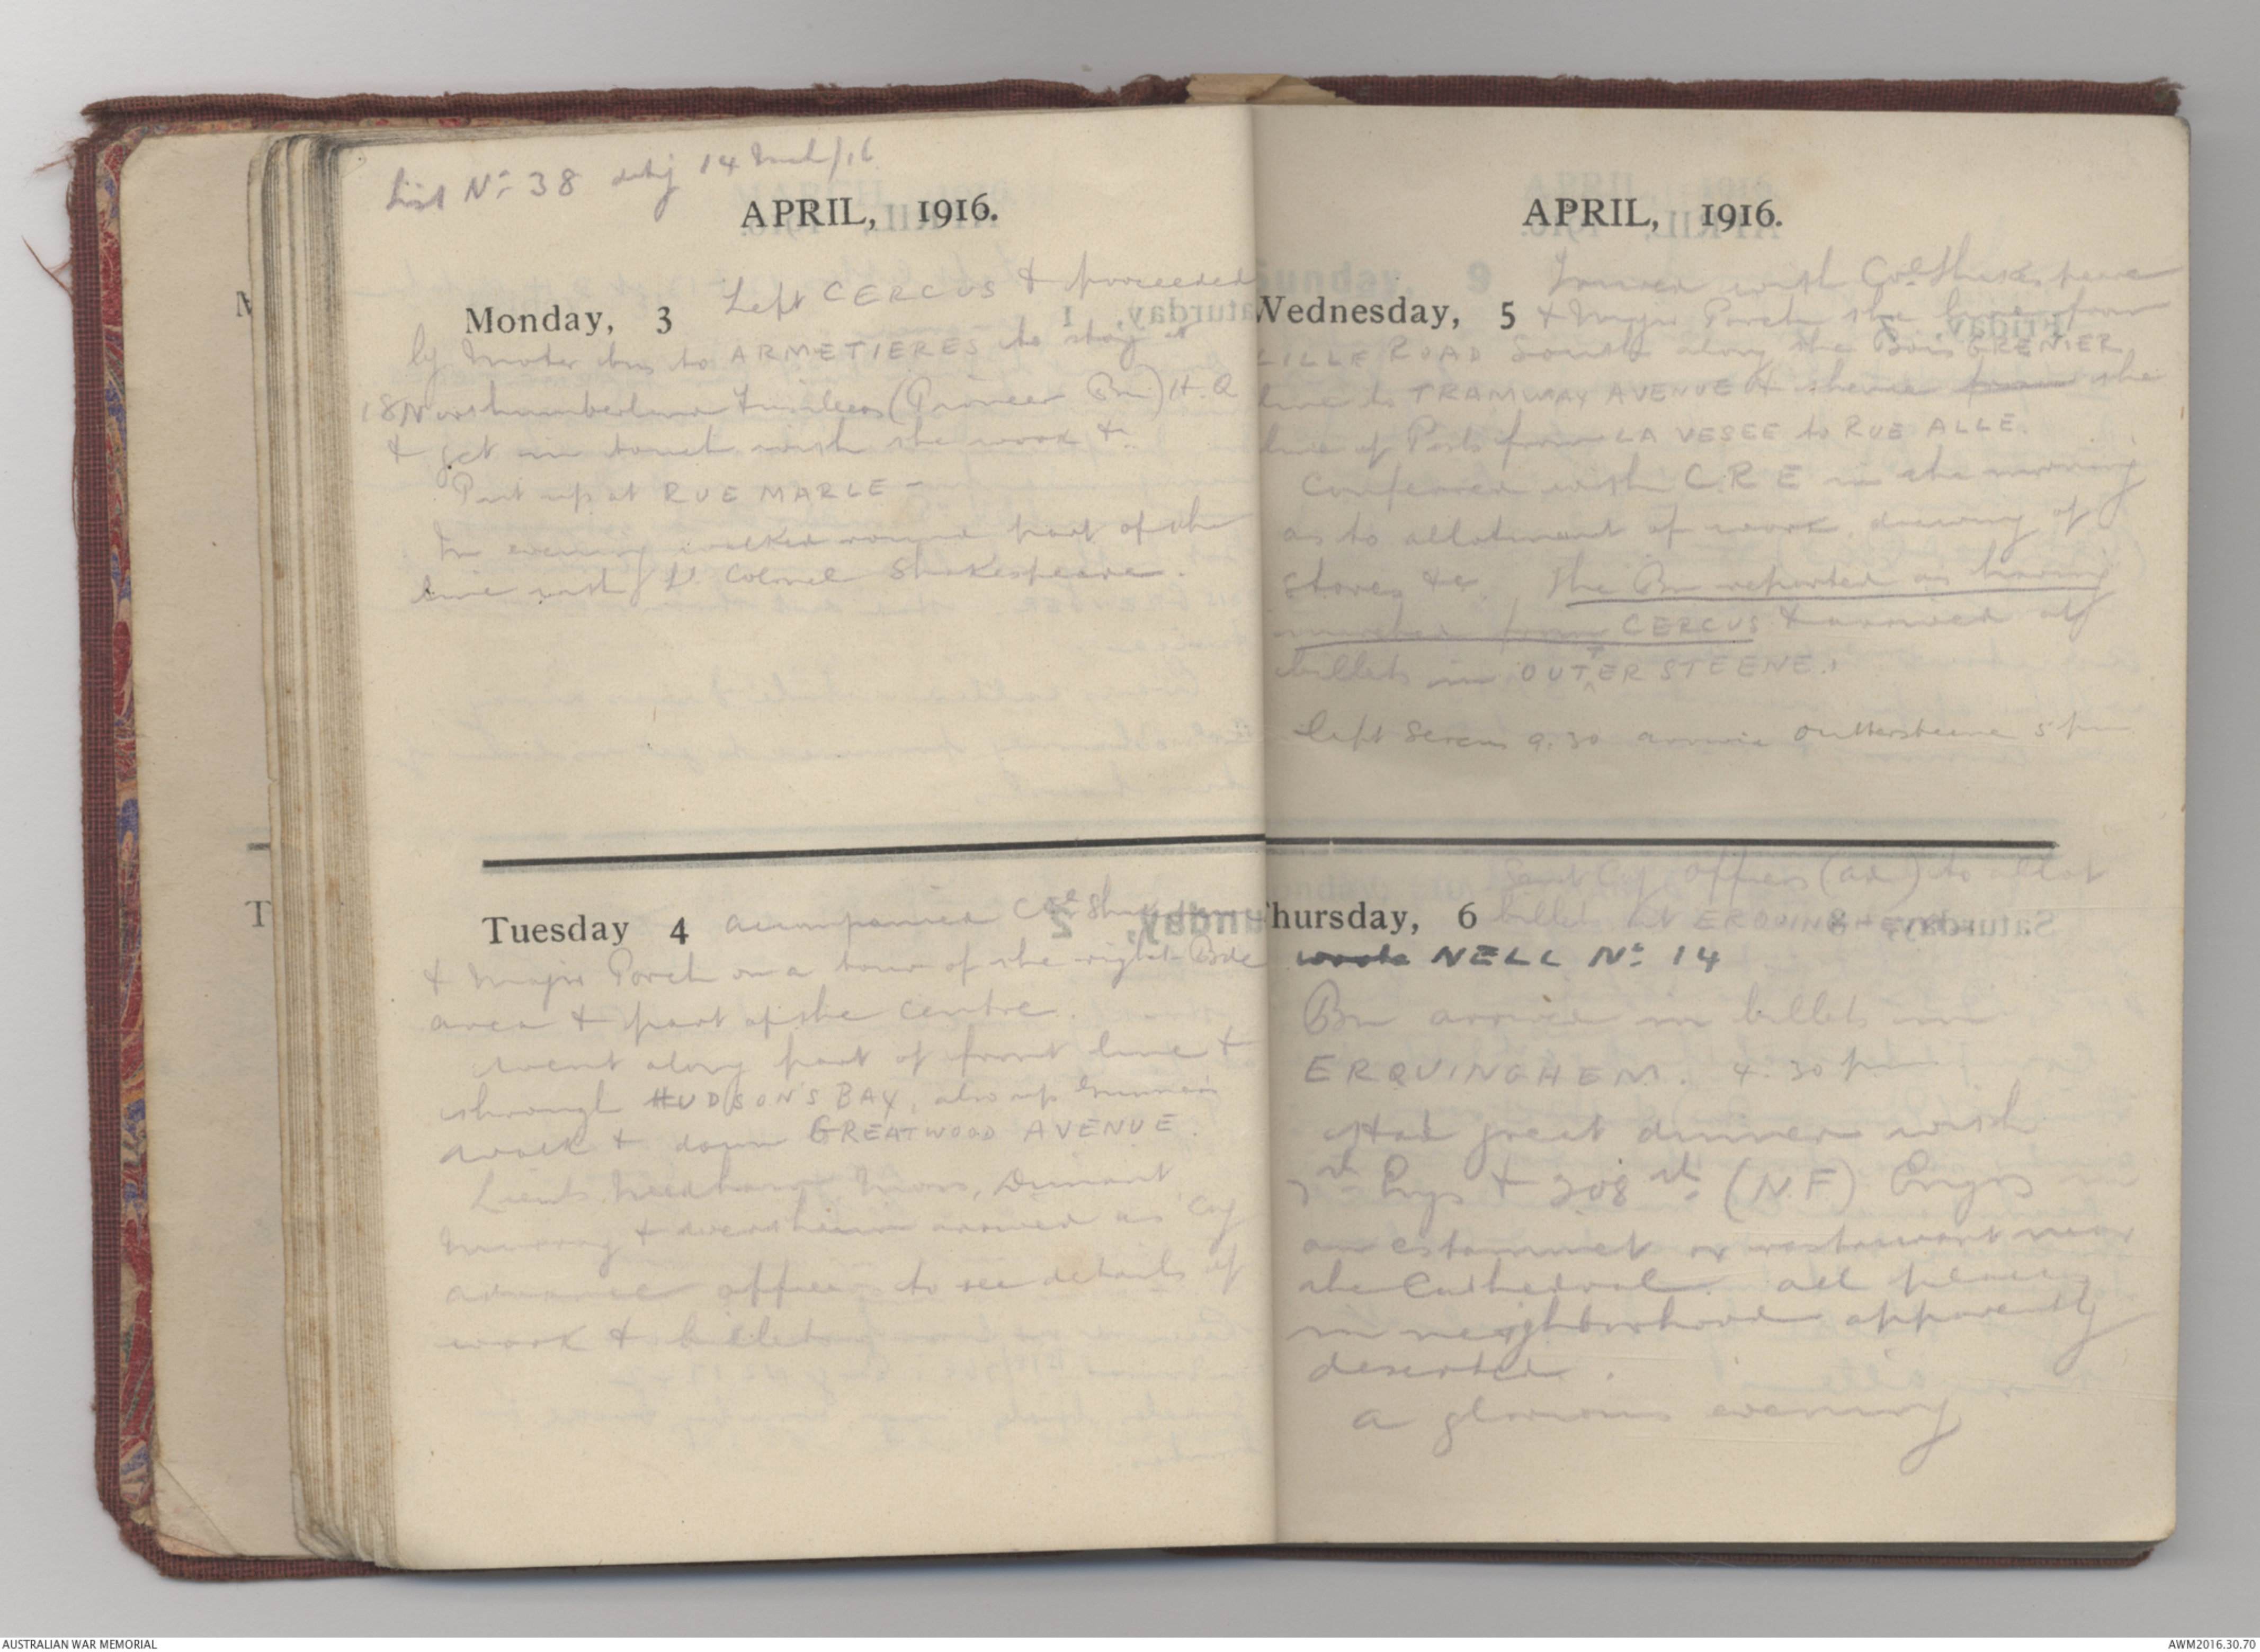 List No. 38
APRIL, 1916.
Monday, 3 Left CERCUS & proceeded
by motor bus to ARMETIERES to stay at
18 Northumberland Fusiliers (Pioneer Bn) H.Q
& get in touch with the work &c
Put up at RUE MARLE -
In evening walked round part of the
line with Lt Colonel Shakespeare.
Tuesday 4 accompanied Col
& Major Porch on a tour of the right Bde
area & part of the centre.
Went along part of front line &
through HUDSON'S BAY, also up
walk & down GREATWOOD AVENUE.
Lieuts. Needham, Moss, Dimant
Murray & arrived as Coy
advance officers to see details of
work & billets
APRIL, 1916.
Wednesday, 5 Toured with Col Shakespeare
& Major Porch the line from
LILLE ROAD South along the Bois GRENIER
line to TRAMWAY AVENUE & thence from the
line of Posts from LA VESEE to RUE ALLE.
Conferred with C.R.E in the morning
as to allotment of work, drawing of
stores &c. The Bn reported as having
marched from CERCUS & arrived at
billets in OUTTERSTEENE.
left Sercus 9.30 arrive Outtersteene 5 pm
Thursday, 6 Sent Coy Officers (ad) to allot
billets at ERQUINGHEM
wrote NELL No. 14
Bn arrived in billets in
ERQUINGHEM. 4.30 pm
Had great dinner with
& 208th (N.F) Engrs in
an estaminet or restaurant near
the Cathedral. All places
in neighborhood apparently
deserted.
a glorious evening
AUSTRALIAN WAR MEMORIAL
AWM2016.30.70